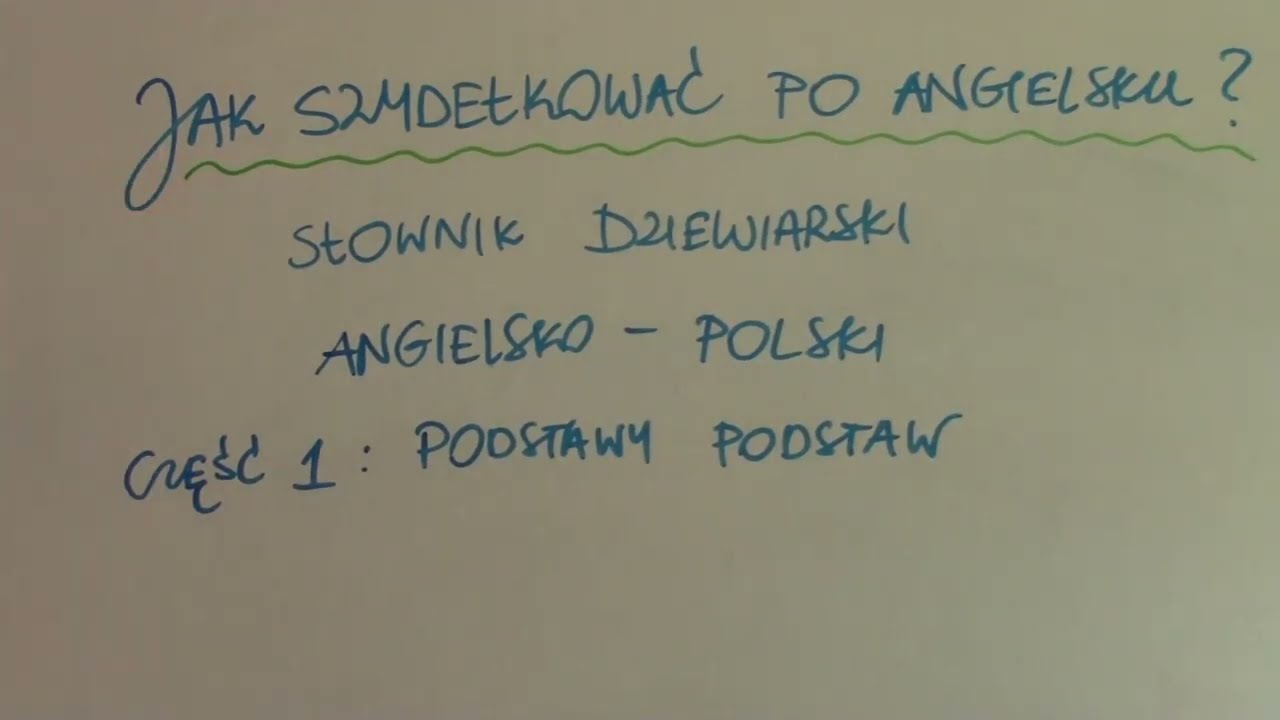 JAK SZYDEŁKOWAĆ PO ANGIELSKU?
SŁOWNIK DZIEWIARSKI
ANGIELSKO - POLSKI
CZĘŚĆ 1: PODSTAWY PODSTAW